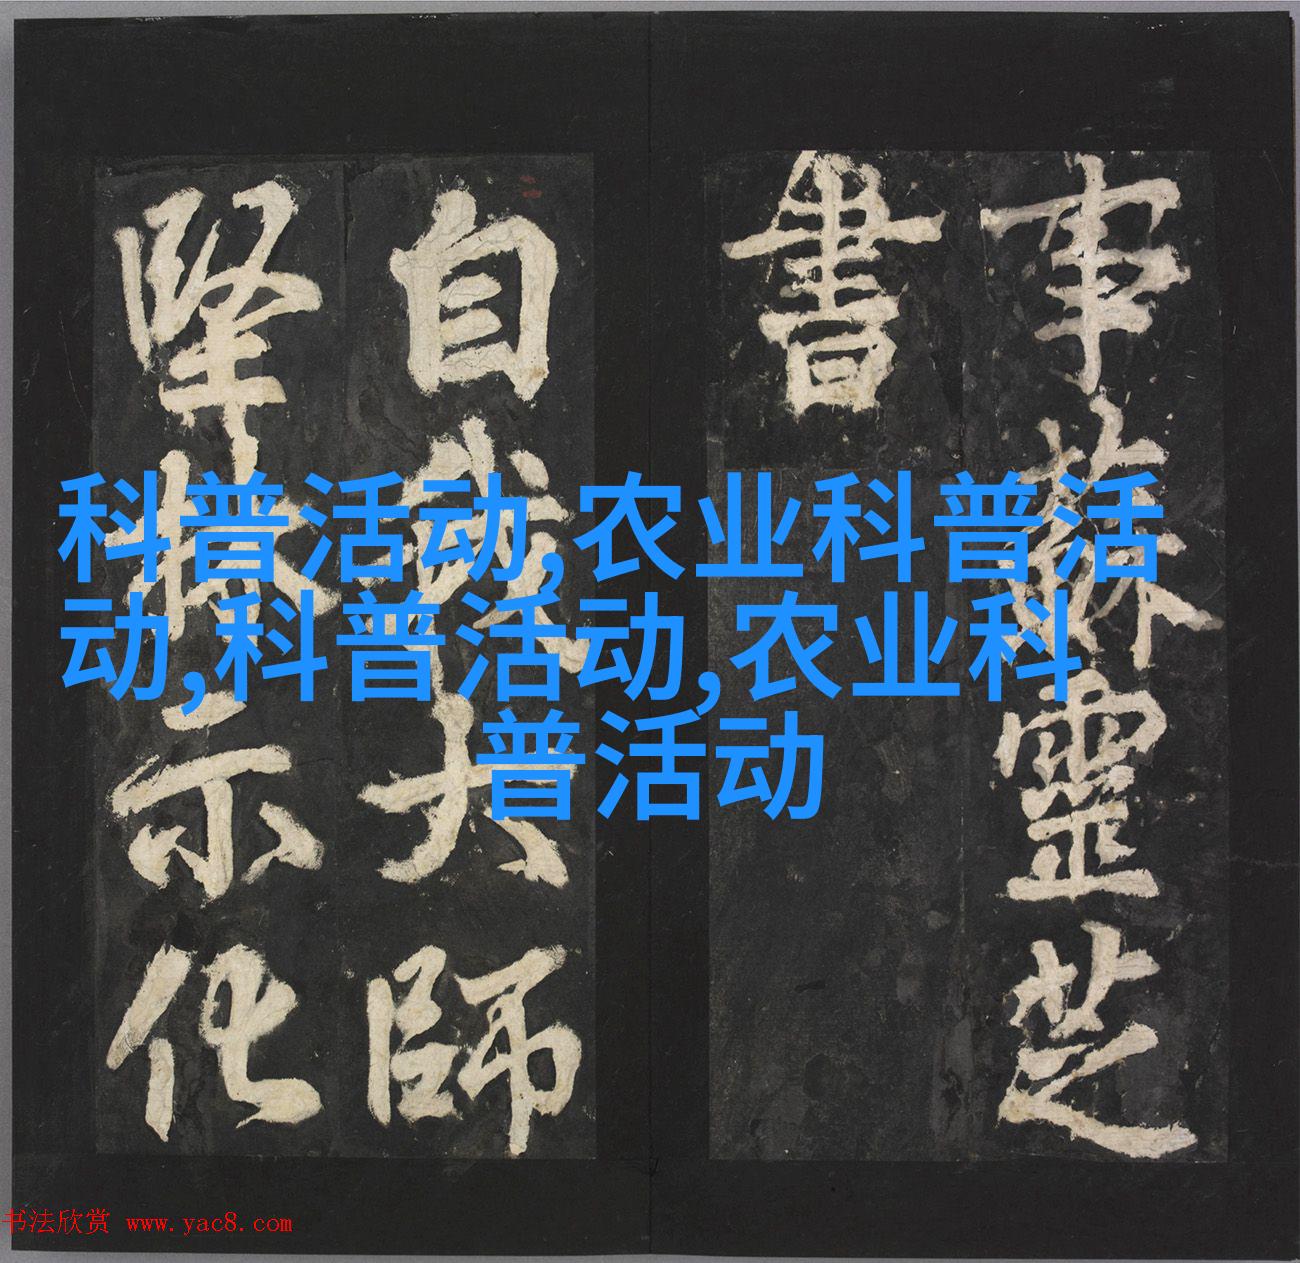 事蘇靈芝
書
自我大師
堅林示化
科普活动,农业科普活
动,科普活动,农业科
普活动
书法欣赏 www.yac8.com